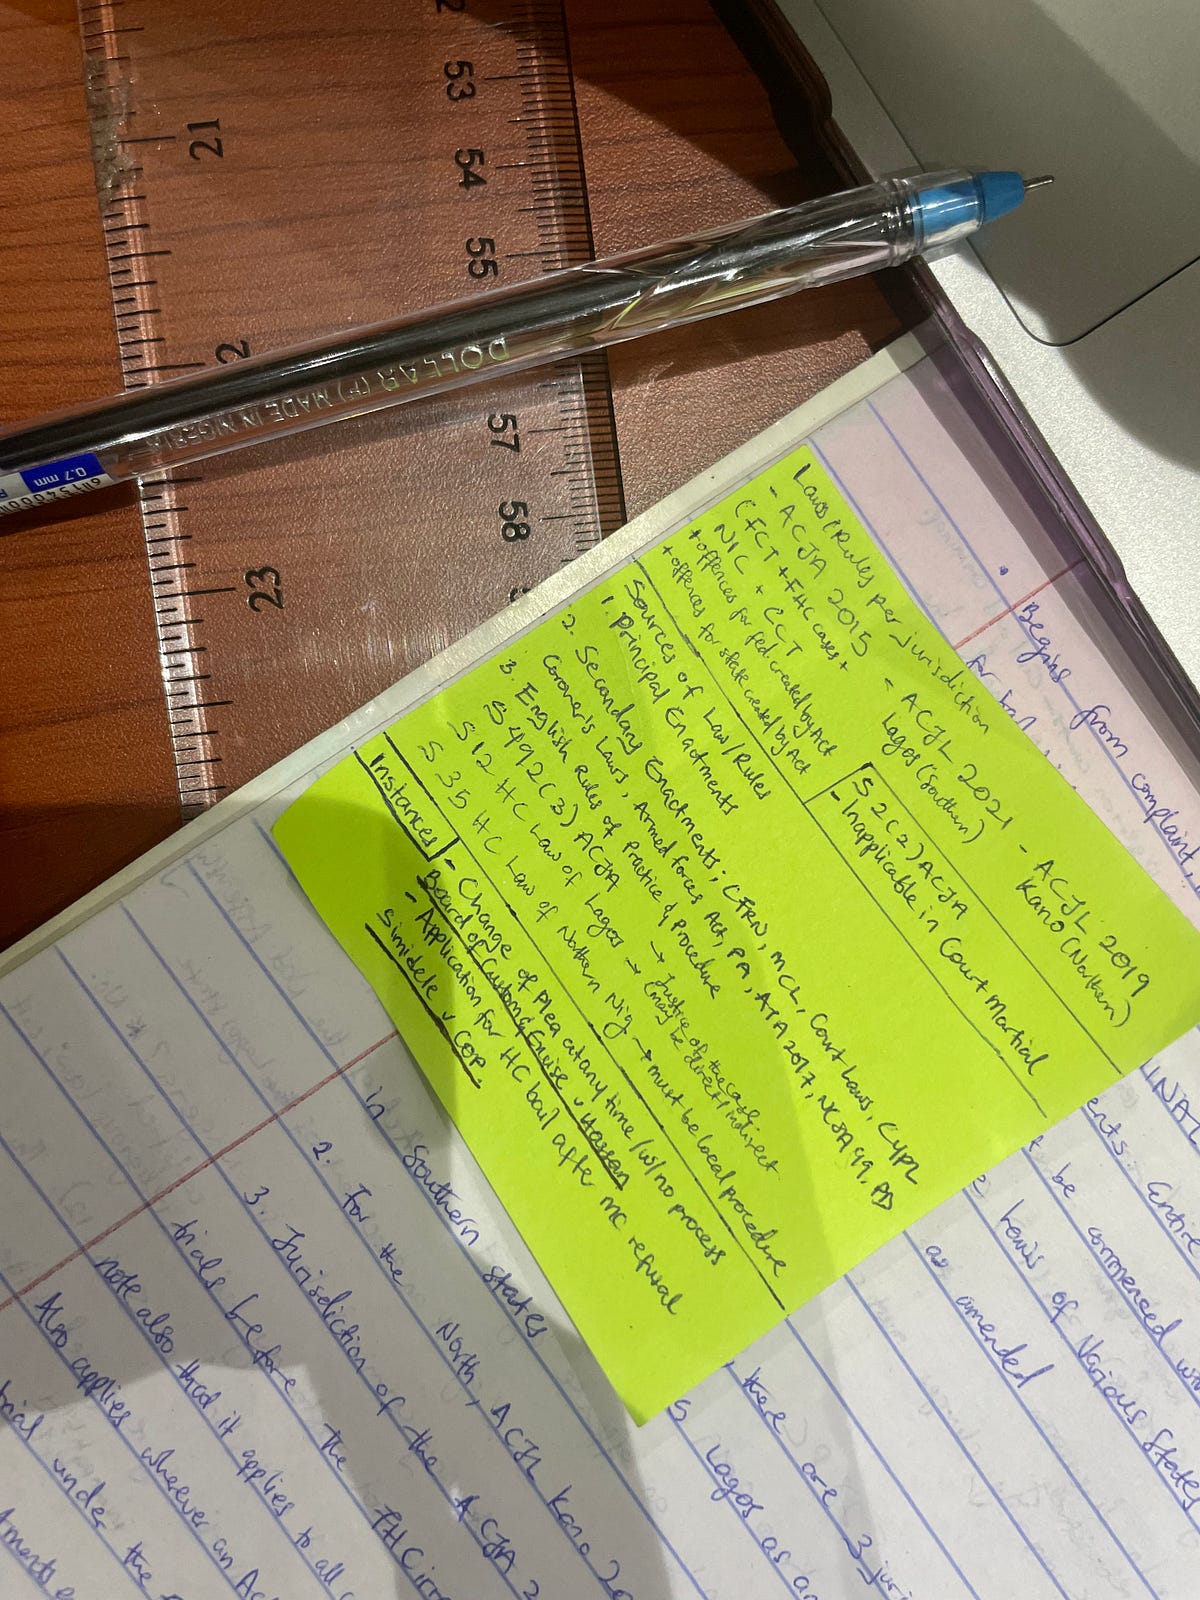 52
53
54
55
57
58
21
2
23
DOLLAR (F) MADE IN NIGERIA
0.7 mm
Laws/Rules per jurisdiction
- ACJA 2015
(FCT + FHC cases +
NIC + CCT
+ offences for fed. created by Act
+ offences for state created by Act
- ACJL 2021
Lagos (Southern)
- ACJL 2019
Kano (Northern)
S 2(2) ACJA
- Inapplicable in Court Martial
Sources of Law/Rules
1. Principal Enactments
2. Secondary Enactments; CFRN, MCL, Court Laws, CYPL
Coroner's Laws, Armed forces Act, PA, ATA 2017, NCJA 99, PD
3. English Rules of Practice & Procedure
S 492(3) ACJA → Justice of the case
(may be direct/indirect
S 12 HC Law of Lagos →
S 35 HC Law of Northern Nig → must be local procedure
Instances
- Change of Plea at any time/w/no process
Board of Custom & Excise v Hassan
- Application for HC bail after MC refusal
Simidele v COP.
Begins from complaint,
be commenced
Laws of Various States
as amended
there are 3
Lagos as
in Southern States
2. For the North, ACJL Kano
3. Jurisdiction of the ACJA
trials before the FHC
note also that it applies to all
Also applies wherever an
trial under the